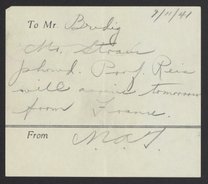 9/11/41
To Mr. Bredig
Mr. Straus
phoned. Prof. Reis
will arrive tomorrow
from France.
From M.A.S.